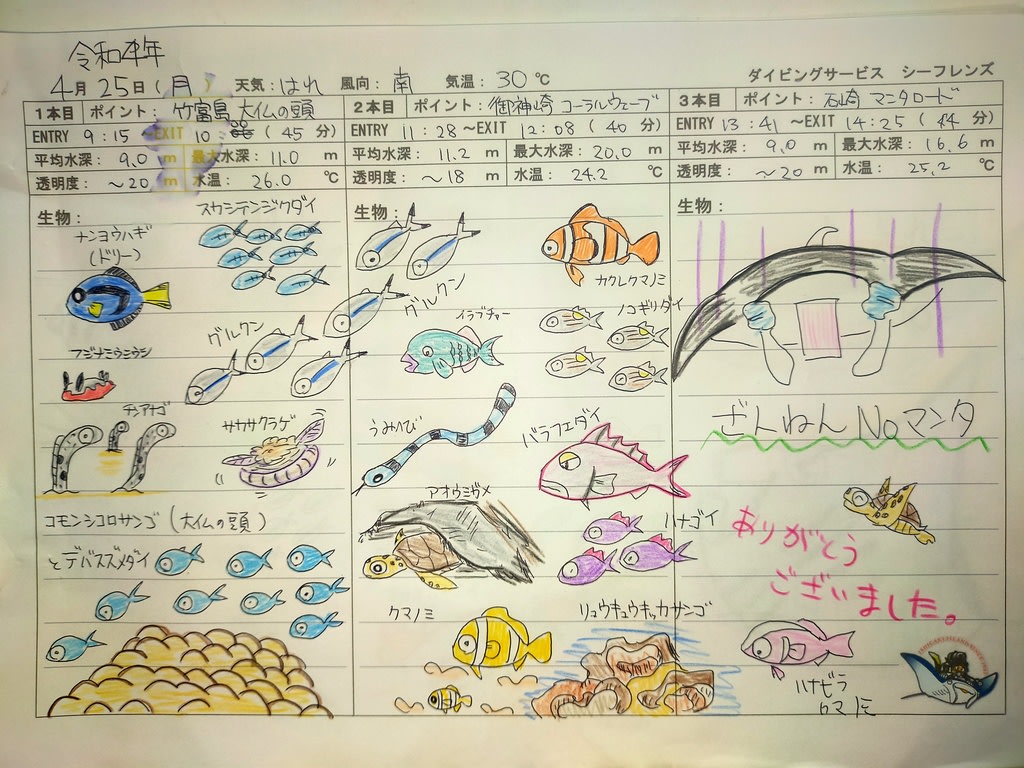 令和4年
4月25日(月) 天気:はれ 風向:南 気温:30℃
ダイビングサービス シーフレンズ
1本目 ポイント:竹富島 大仏の頭
ENTRY 9:15 ~EXIT 10: (45分)
平均水深: 9.0 m 最大水深: 11.0 m
透明度: ~20 m 水温: 26.0 ℃
生物:
スカシテンジクダイ
ナンヨウハギ
(ドリー)
グルクン
フジナミウミウシ
チンアナゴ
サカサクラゲ
コモンシコロサンゴ(大仏の頭)
とデバスズメダイ
2本目 ポイント:御神崎 コーラルウェーブ
ENTRY 11:28 ~EXIT 12:08 (40分)
平均水深: 11.2 m 最大水深: 20.0 m
透明度: ~18 m 水温: 24.2 ℃
生物:
カクレクマノミ
グルクン
イラブチャー
ノコギリダイ
うみへび
バラフエダイ
アオウミガメ
ハナゴイ
クマノミ
リュウキュウキッカサンゴ
3本目 ポイント:石崎 マンタロード
ENTRY 13:41 ~EXIT 14:25 (44分)
平均水深: 9.0 m 最大水深: 16.6 m
透明度: ~20 m 水温: 25.2 ℃
生物:
ざんねん Noマンタ
ありがとう
ございました。
ハナビラ
クマノミ